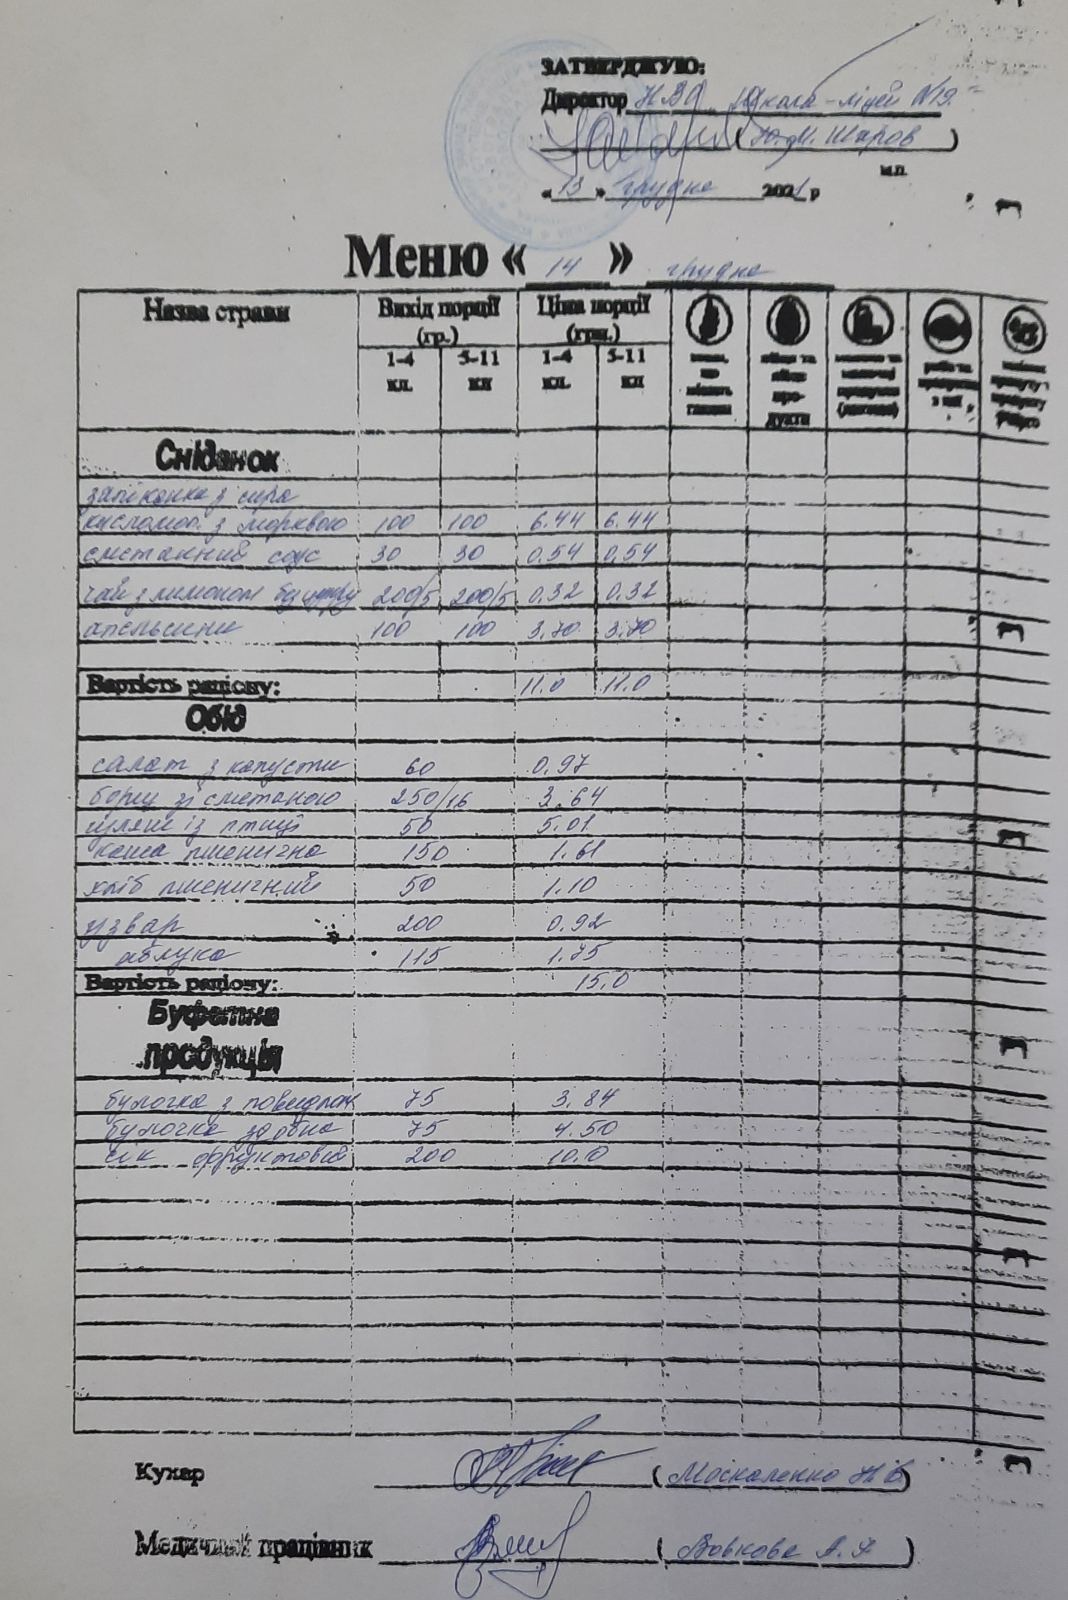 ЗАТВЕРДЖУЮ:
Директор НВО Школа-ліцей №19
(Ю.М. Шаров)
м.п.
«13» грудня 2021 р
Меню « 14 » грудня
Назва страви Вихід порції (гр.) Ціна порції (грн.)
1-4 кл. 5-11 кл 1-4 кл. 5-11 кл
Сніданок
запіканка з сира
кисломол. з морквою 100 100 6.44 6.44
сметанний соус 30 30 0.54 0.54
чай з лимоном без цукру 200/5 200/5 0.32 0.32
апельсини 100 100 3.70 3.70
Вартість раціону: 11.0 11.0
Обід
салат з капусти 60 0.97
борщ зі сметаною 250/16 3.64
гуляш із птиці 50 5.01
каша пшенична 150 1.61
хліб пшеничний 50 1.10
узвар 200 0.92
яблука 115 1.75
Вартість раціону: 15.0
Буфетна
продукція
булочка з повидлом 75 3.84
булочка здобна 75 4.50
сік фруктовий 200 10.0
Кухар (Москаленко Н В)
Медичний працівник (Вовкова А.)